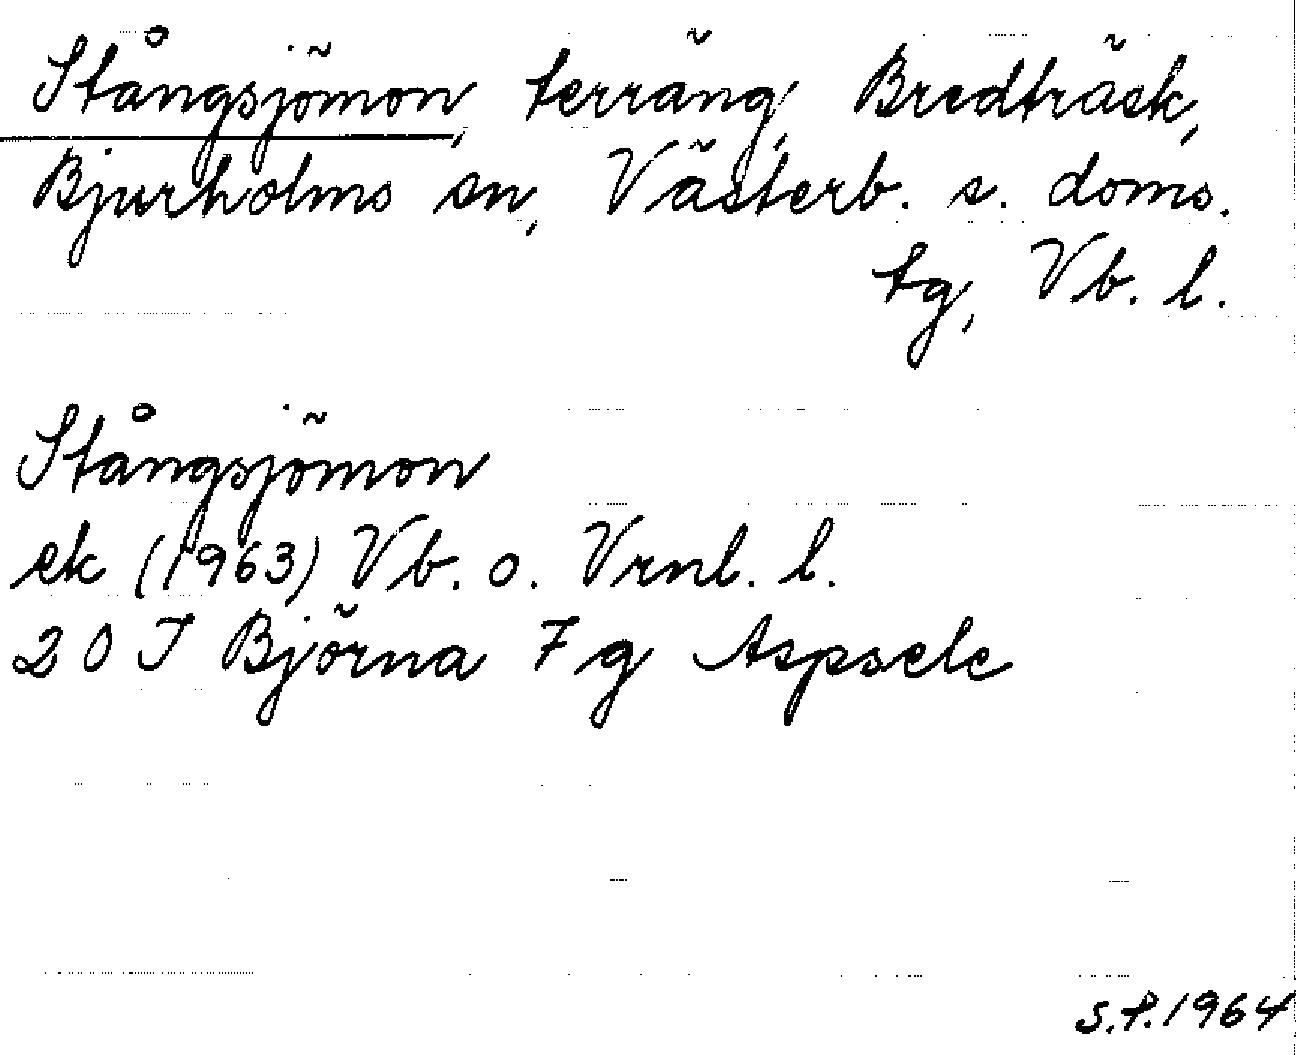 Stångsjömon, terräng, Bredträsk,
Bjurholms sn, Västerb. s. doms.
tg, Vb. l.
Stångsjömon
ek (1963) Vb. o. Vrnl. l.
20 J Björna 7 g Aspsele
S.P. 1964